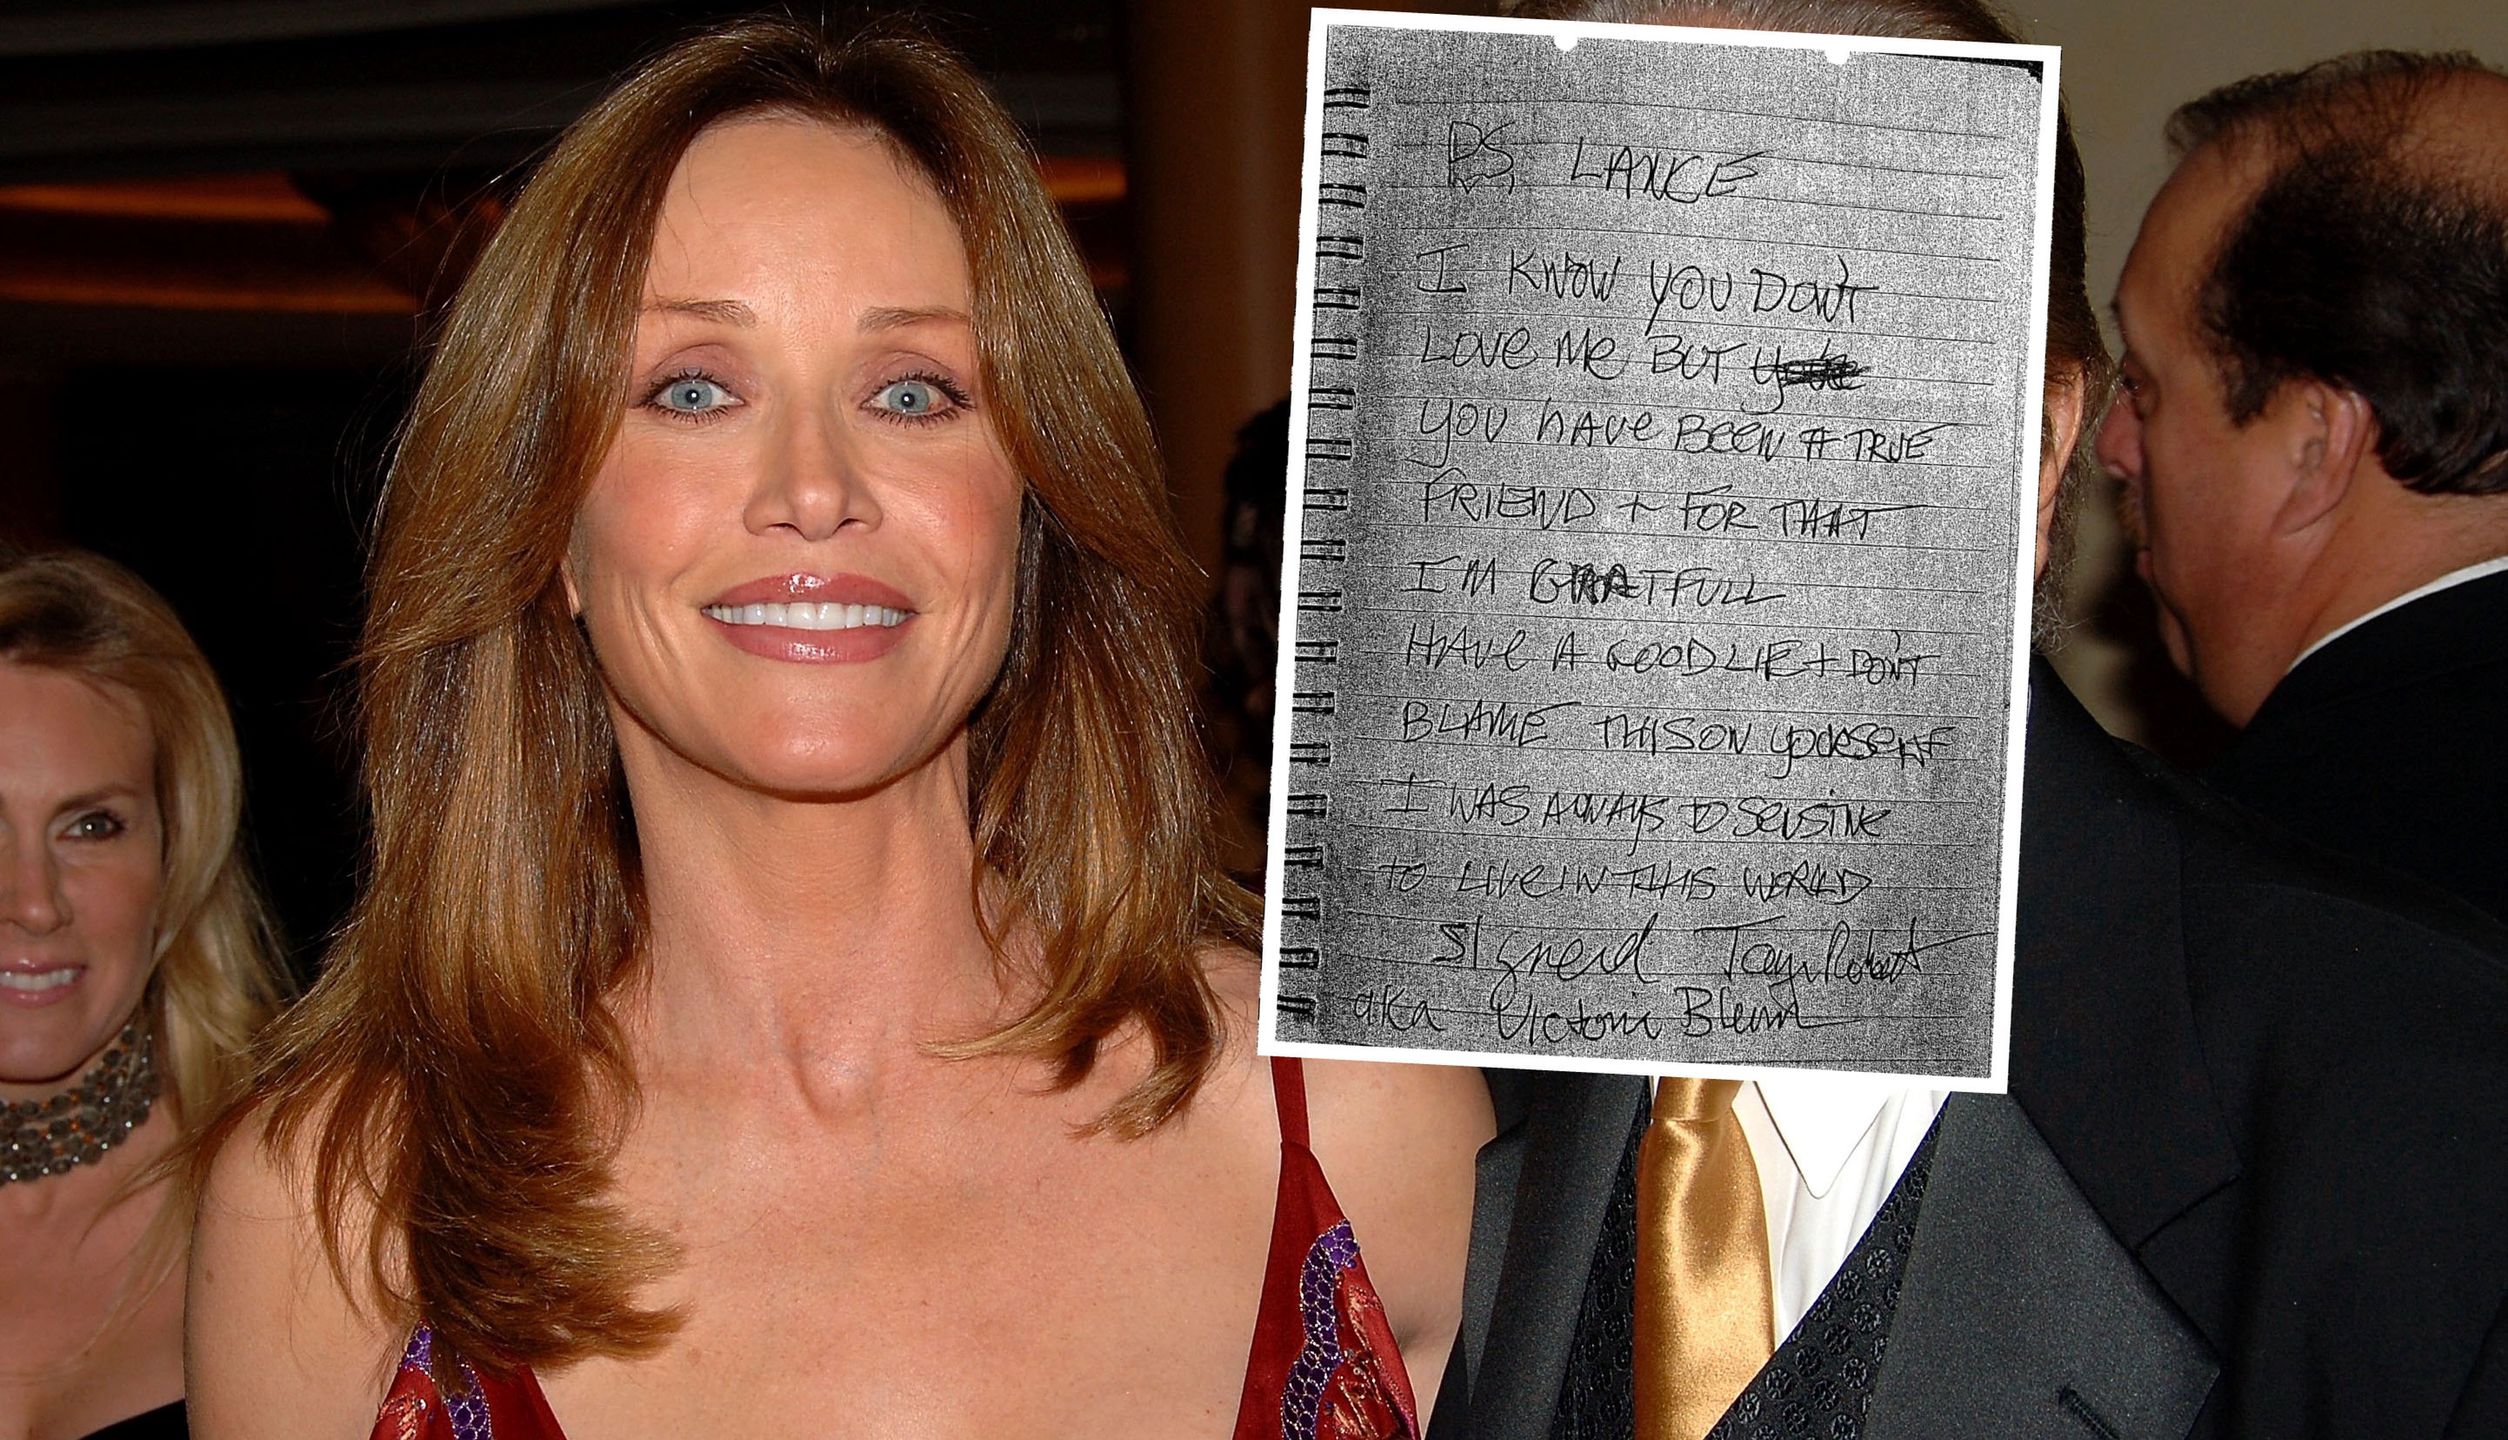 PS, LANCE
I KNOW YOU DON'T
LOVE ME BUT
YOU HAVE BEEN A TRUE
FRIEND + FOR THAT
I'M GRATFULL
HAVE A GOOD LIE + DON'T
BLAME THIS ON
I WAS ALWAYS TO SENSITIVE
TO LIVE IN THIS WORLD
signed
aka Victoria